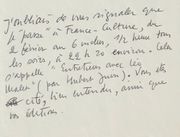 J'oubliais de vous signaler que
je "passe" à France-Culture, du
2 février au 6 inclus, 1/2 heure tous
les soirs, à 22 h 20 environ. Cela
s'appelle "Entretiens avec Léo
Malet" (par Hubert Juin). Vous êtes
cité, bien entendu, ainsi que
vos éditions.